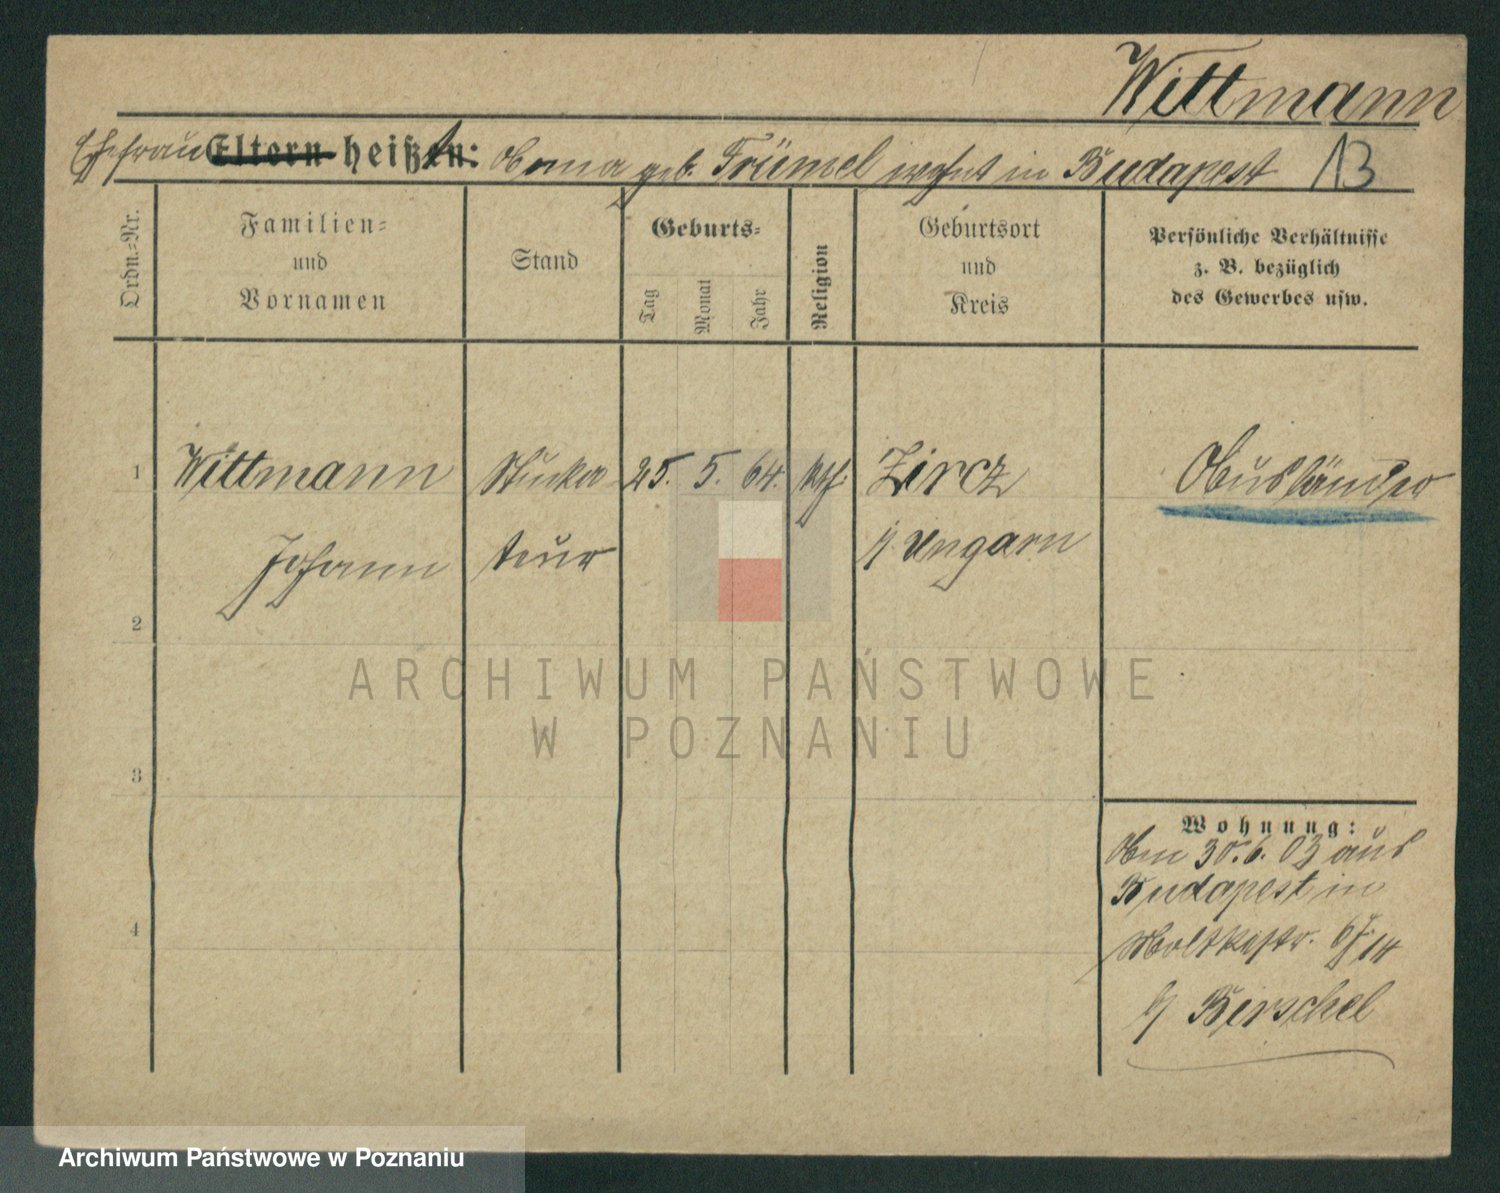 Wittmann
Ehefrau Eltern heißt: Anna geb. Trümel wohnt in Budapest 13
Ordn.=Nr.
Familien=
und
Vornamen
Stand
Geburts=
Tag
Monat
Jahr
Religion
Geburtsort
und
Kreis
Persönliche Verhältnisse
z. B. bezüglich
des Gewerbes usw.
1 Wittmann Stucka 25. 5. 64. kth. Zircz Ausländer
Johann teur i/ Ungarn
2
3
4
Wohnung:
Am 30.6.03 aus
Budapest in
Moltkestr. 14
b/ Birschel
ARCHIWUM PAŃSTWOWE
W POZNANIU
Archiwum Państwowe w Poznaniu